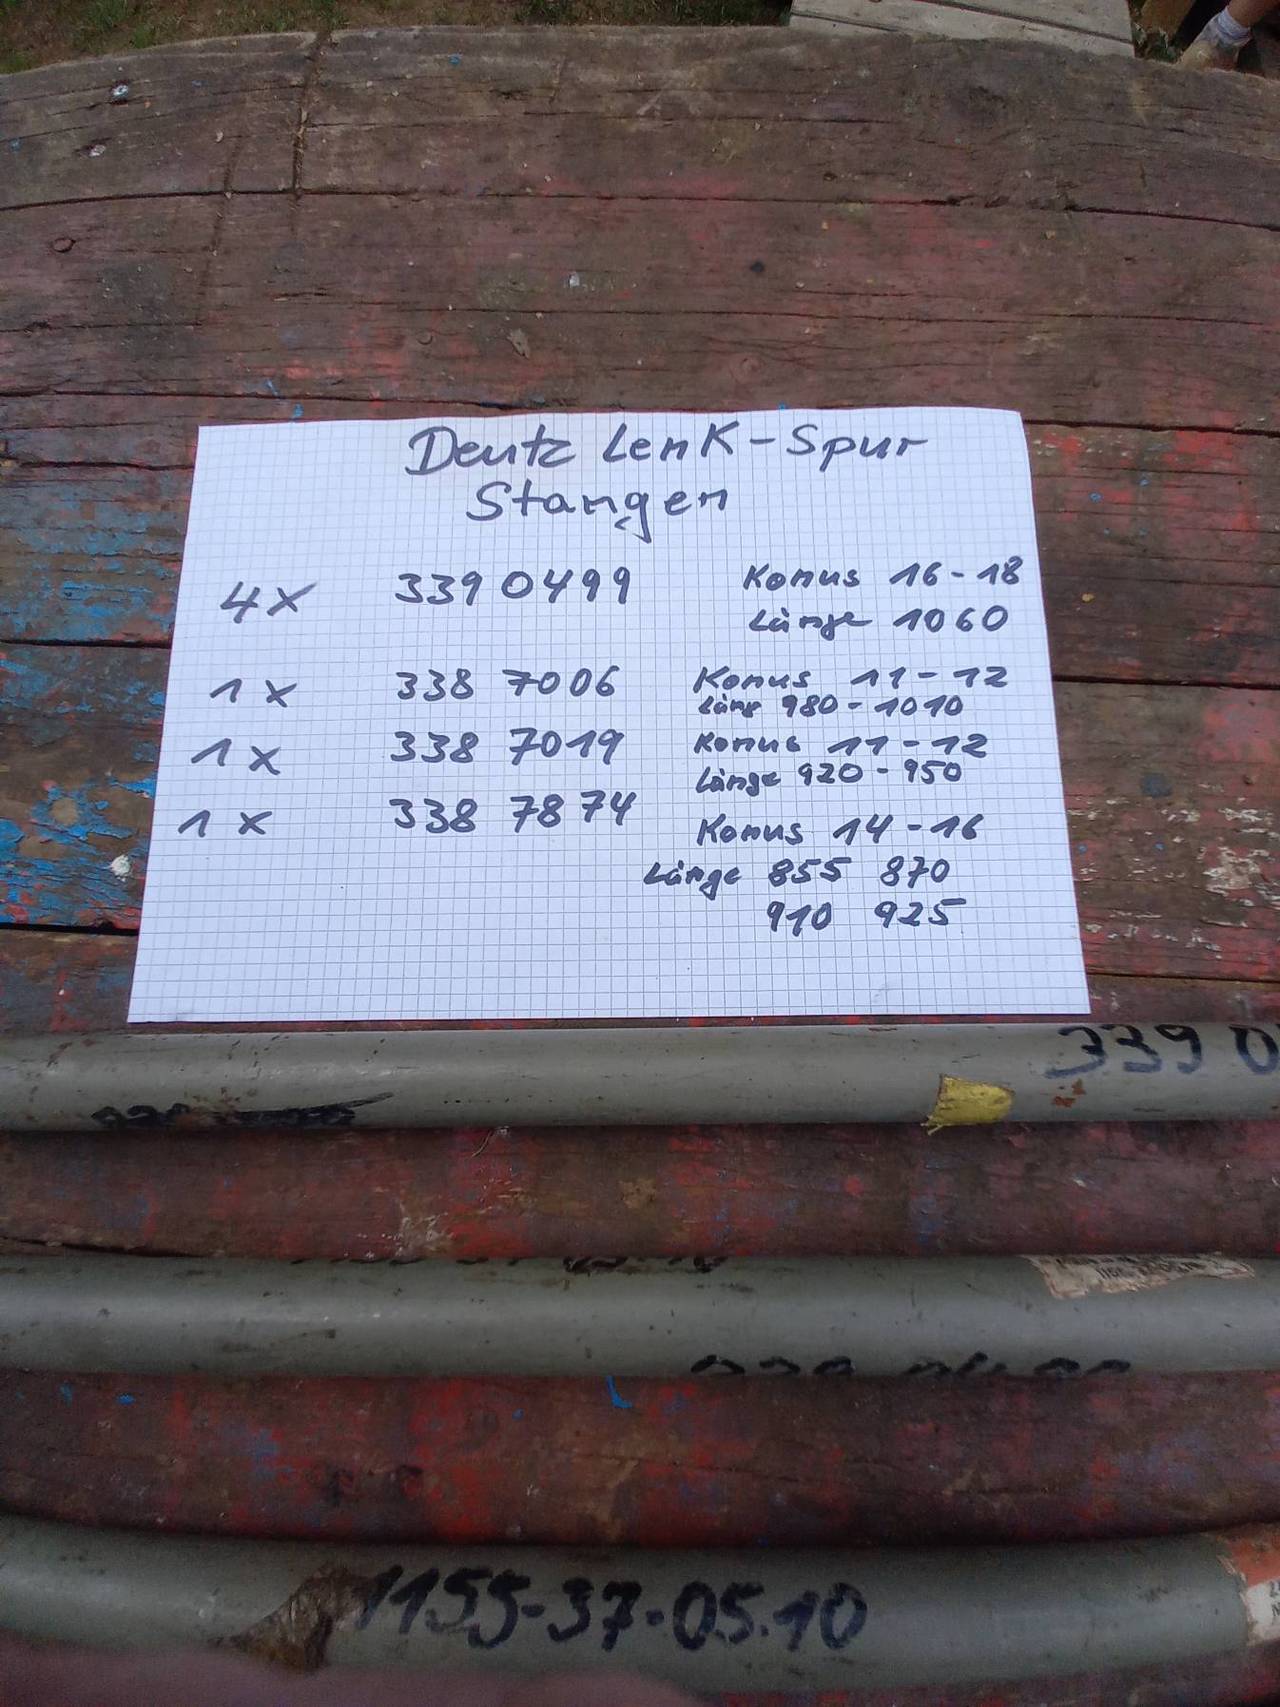 Deutz Lenk-Spur
Stangen
4x 339 0499 Konus 16-18
Länge 1060
1x 338 7006 Konus 11-12
Läng 980-1010
1x 338 7019 Konus 11-12
Länge 920-950
1x 338 7874 Konus 14-16
Länge 855 870
910 925
339 0
1155-37-05.10